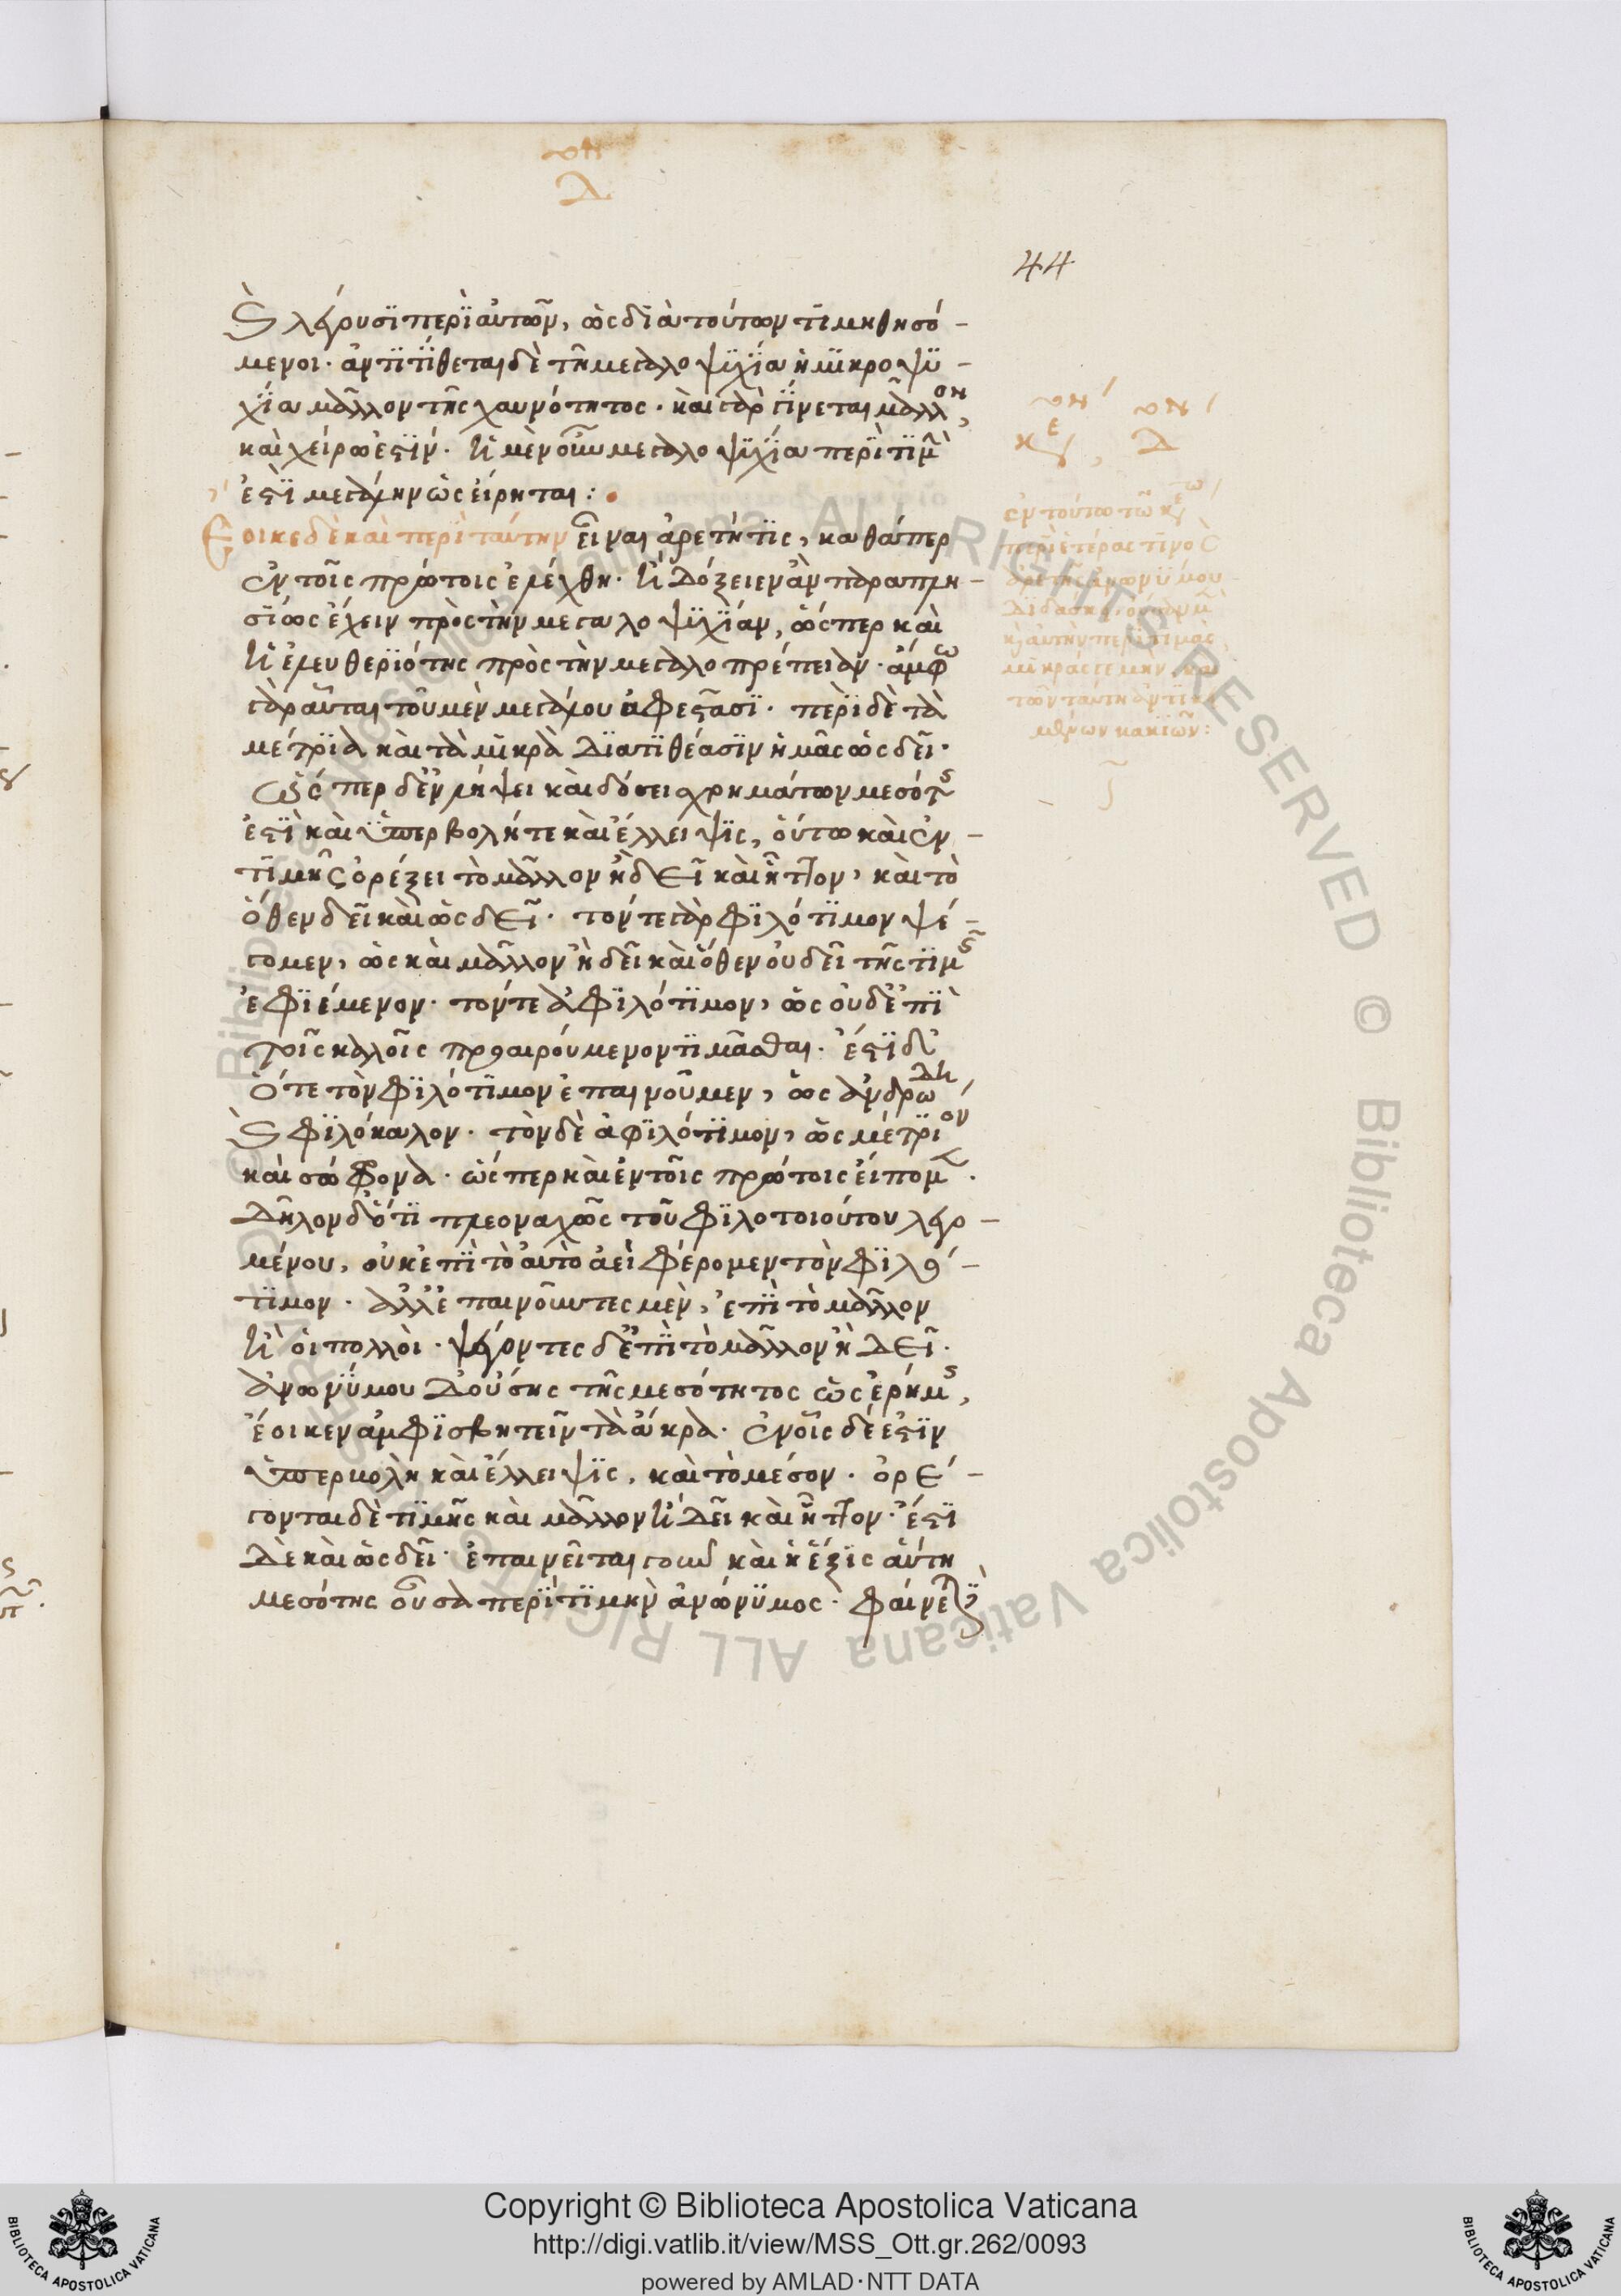 44
καὶ λέγουσι περὶ αὐτῶν, ὡς διὰ τούτων τιμηθησό-
μενοι. ἀντιτίθεται δὲ τῆ μεγαλοψυχία ἡ μικροψυ-
χία μᾶλλον τῆς χαυνότητος. καὶ γὰρ γίνεται μᾶλλον,
καὶ χείρω ἐστίν. ἡ μὲν οὖν μεγαλοψυχία περὶ τιμὴν
ἐστι μεγάλην ὡς εἴρηται:
Ἔοικε δὲ καὶ περὶ ταύτην εἶναι ἀρετή τις, καθάπερ
ἐν τοῖς πρώτοις ἐλέχθη. ἣ δόξειεν ἂν παραπλη-
σίως ἔχειν πρὸς τὴν μεγαλοψυχίαν, ὥσπερ καὶ
ἡ ἐλευθεριότης πρὸς τὴν μεγαλοπρέπειαν. ἄμφω
γὰρ αὗται τοῦ μὲν μεγάλου ἀφεστᾶσι. περὶ δὲ τὰ
μέτρια καὶ τὰ μικρὰ διατιθέασιν ἡμᾶς ὡς δεῖ.
ὥσπερ δ' ἐν λήψει καὶ δόσει χρημάτων μεσότης
ἐστὶ καὶ ὑπερβολή τε καὶ ἔλλειψις, οὕτω καὶ ἐν
τιμῆς ὀρέξει τὸ μᾶλλον ἢ δεῖ καὶ ἧττον, καὶ τὸ
ὅθεν δεῖ καὶ ὡς δεῖ. τόν τε γὰρ φιλότιμον ψέ-
γομεν, ὡς καὶ μᾶλλον ἢ δεῖ καὶ ὅθεν οὐ δεῖ τῆς τιμῆς
ἐφιέμενον. τόν τε ἀφιλότιμον, ὡς οὐδ' ἐπὶ
τοῖς καλοῖς προαιρούμενον τιμᾶσθαι. ἔστι δ'
ὅτε τὸν φιλότιμον ἐπαινοῦμεν, ὡς ἀνδρώδη,
καὶ φιλόκαλον. τὸν δὲ ἀφιλότιμον, ὡς μέτριον
καὶ σώφρονα. ὥσπερ καὶ ἐν τοῖς πρώτοις εἴπομεν.
δῆλον δ' ὅτι πλεοναχῶς τοῦ φιλοτοιούτου λεγο-
μένου, οὐκ ἐπὶ τὸ αὐτὸ ἀεὶ φέρομεν τὸν φιλό-
τιμον. ἀλλ' ἐπαινοῦντες μὲν, ἐπὶ τὸ μᾶλλον
ἢ οἱ πολλοὶ. ψέγοντες δ' ἐπὶ τὸ μᾶλλον ἢ δεῖ.
ἀνωνύμου δ' οὔσης τῆς μεσότητος ὡς ἐρήμης,
ἔοικεν ἀμφισβητεῖν τὰ ἄκρα. ἐν οἷς δέ ἐστιν
ὑπερβολὴ καὶ ἔλλειψις, καὶ τὸ μέσον. ὀρέ-
γονται δὲ τιμῆς καὶ μᾶλλον ἢ δεῖ καὶ ἧττον. ἔστι
δὲ καὶ ὡς δεῖ. ἐπαινεῖται γοῦν καὶ ἡ ἕξις αὕτη
μεσότης οὖσα περὶ τιμὴν ἀνώνυμος. φαίνεται
ἐν τούτω τῶ κε ω
περὶ ἑτέρας τινὸς
ἀρετῆς ἀνωνύμου
μικράς γε μὴν, καὶ
τῶν ταύτη ἀντικει
μένων κακιῶν:
Copyright © Biblioteca Apostolica Vaticana
http://digi.vatlib.it/view/MSS_Ott.gr.262/0093
powered by AMLAD·NTT DATA